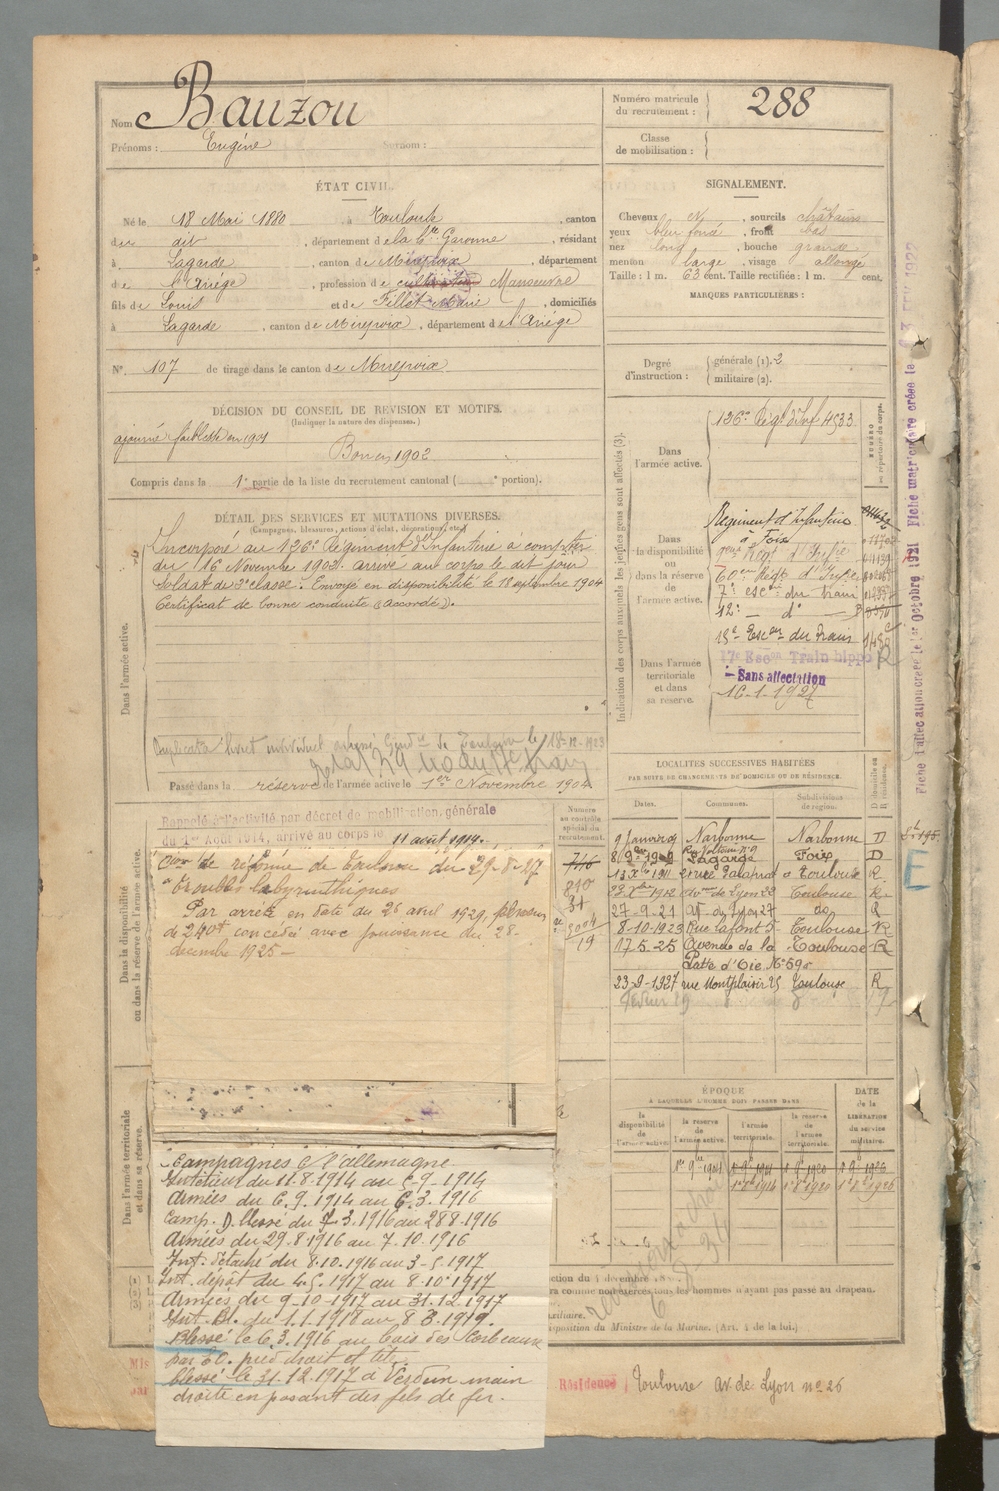 Nom Bauzou
Prénoms : Eugène Surnom :
Numéro matricule du recrutement : 288
Classe de mobilisation :
ÉTAT CIVIL.
Né le 18 Mai 1880, à Toulouse, canton
du dit, département de la Hte Garonne, résidant
à Lagarde, canton de Mirepoix, département
de l'Ariège, profession de cultivateur Manoeuvre
fils de Louis et de Fillol Marie, domiciliés
à Lagarde, canton de Mirepoix, département de l'Ariège
N° 107 de tirage dans le canton de Mirepoix
SIGNALEMENT.
Cheveux N, sourcils châtains
yeux bleu foncé, front bas
nez long, bouche grande
menton large, visage allongé
Taille : 1 m. 63 cent. Taille rectifiée : 1 m. cent.
MARQUES PARTICULIÈRES :
Degré d'instruction : générale (1). 2
militaire (2).
DÉCISION DU CONSEIL DE RÉVISION ET MOTIFS.
(Indiquer la nature des dispenses.)
ajourné faiblesse en 1901
Bon en 1902
Compris dans la 1e partie de la liste du recrutement cantonal ( e portion).
DÉTAIL DES SERVICES ET MUTATIONS DIVERSES.
(Campagnes, blessures, actions d'éclat, décorations, etc.)
Incorporé au 126e Régiment d'Infanterie à compter
du 16 Novembre 1902. arrivé au corps le dit jour
soldat de 2e classe. Envoyé en disponibilité le 18 septembre 1904
Certificat de bonne conduite "accordé".
Dans l'armée active.
Duplicata livret individuel adressé Gendie de Toulouse le 18-12-1923
Passé dans la réserve de l'armée active le 1er Novembre 1904
Indication des corps auxquels les jeunes gens sont affectés (3).
NUMÉRO au répertoire du corps.
Dans l'armée active.
126e Régt d'Inf 4533
Dans la disponibilité ou dans la réserve de l'armée active.
Régiment d'Infanterie
à Foix
Régt d'Infie
60eme Régt d'Infie
7e escon du train
12e - do -
18e Escon du Train
Dans l'armée territoriale et dans sa réserve.
17e Escon Train hippo
Sans affectation
16-1-1927
Fiche d'affectation créée le 1er Octobre 1921 Fiche matriculaire créée le 23 FEV 1922
Rappelé à l'activité par décret de mobilisation générale
du 1er Août 1914, arrivé au corps le 11 août 1914.
Numéro au contrôle spécial du recrutement.
716
810
31
3004
19
Con de réforme de Toulouse du 29-8-27
Troubles labyrinthiques
Par arrêté en date du 26 avril 1929, pension
de 240f concédée avec jouissance du 28
décembre 1925 -
Dans la disponibilité ou dans la réserve de l'armée active.
LOCALITÉS SUCCESSIVES HABITÉES
PAR SUITE DE CHANGEMENTS DE DOMICILE OU DE RÉSIDENCE.
Dates. Communes. Subdivisions de région. D domicile ou R résidence.
9 Janvier 09 Narbonne Narbonne D
Rue Voltaire N° 9
8 9bre 1909 Lagarde Foix D
13 Xbre 1911 21 rue Palaprat à Toulouse R
1912 Av. de Lyon 22 Toulouse R
27-9-21 Av. du Lyon 27 do R
8-10-1923 Rue Lafont 5 Toulouse R
17.5-25 Avenue de la Toulouse R
Patte d'Oie N° 59
23-9-1927 rue Montplaisir 25 Toulouse R
ÉPOQUE
A LAQUELLE L'HOMME DOIT PASSER DANS
la disponibilité de l'armée active. la réserve de l'armée active. l'armée territoriale. la réserve de l'armée territoriale.
DATE de la LIBÉRATION du service militaire.
1er 9bre 1904
Dans l'armée territoriale et dans sa réserve.
Campagnes c/ l'allemagne
Intérieur du 11.8.1914 au 5-9-1914
Armées du 6.9.1914 au 6.3.1916
Camp. D. blessé du 7.3.1916 au 28 8 1916
Armées du 29.8.1916 au 7.10.1916
Int. Détaché du 8.10.1916 au 3-5.1917
Int. dépôt du 4.5.1917 au 8.10.1917
Armées du 9-10-1917 au 31.12.1917
Int. Bl. du 1.1.1918 au 8.3.1919.
Blessé le 6.3.1916 au bois des Corbeaux
par EO. pied droit et tête.
blessé le 31.12.1917 à Verdun main
droite en posant des fils de fer.
Résidence Toulouse av. de Lyon n° 26